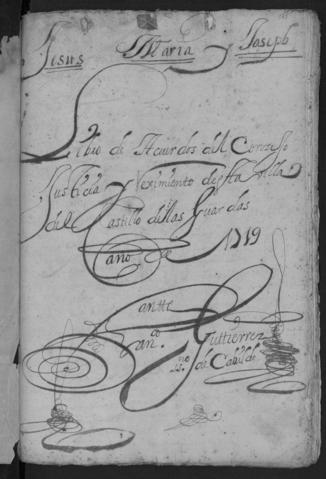 Jesus Maria Joseph
Libro de Acuerdos del Conzejo
Justicia y Reximiento desta villa
del Castillo de las Guardas
año de 1719
antte
Gutierrez
ss.no de Cavildo